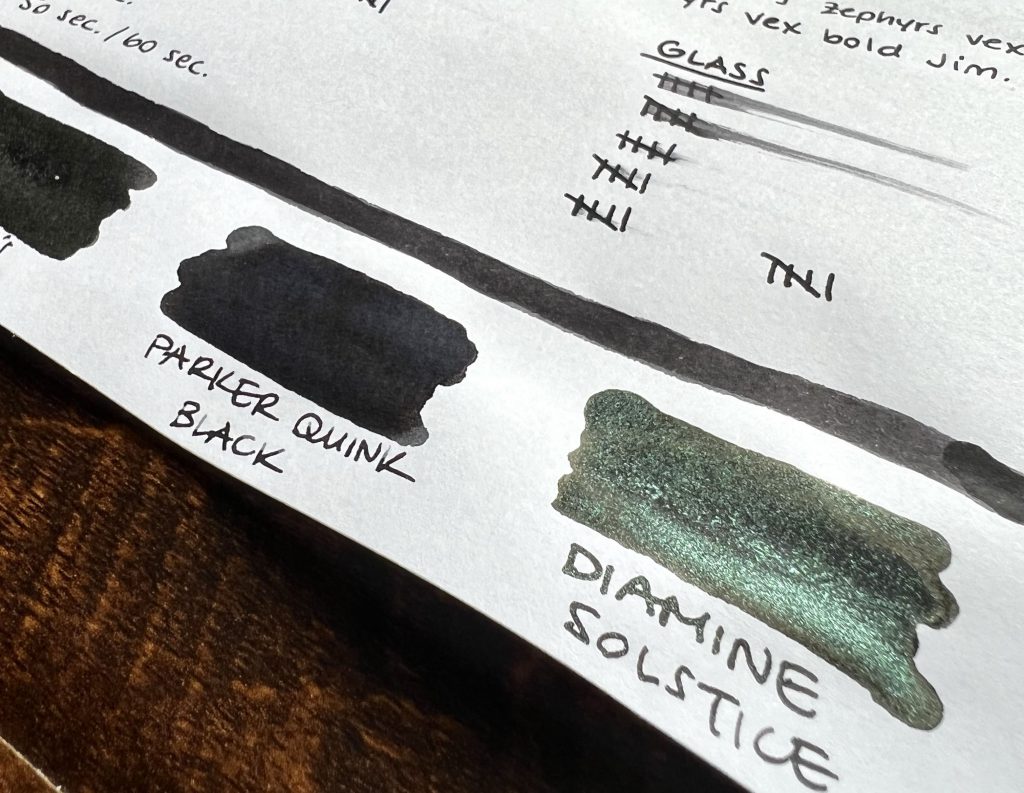 30 sec. / 60 sec.
zephyrs vex
vex bold Jim.
GLASS
PARKER QUINK
BLACK
DIAMINE
SOLSTICE